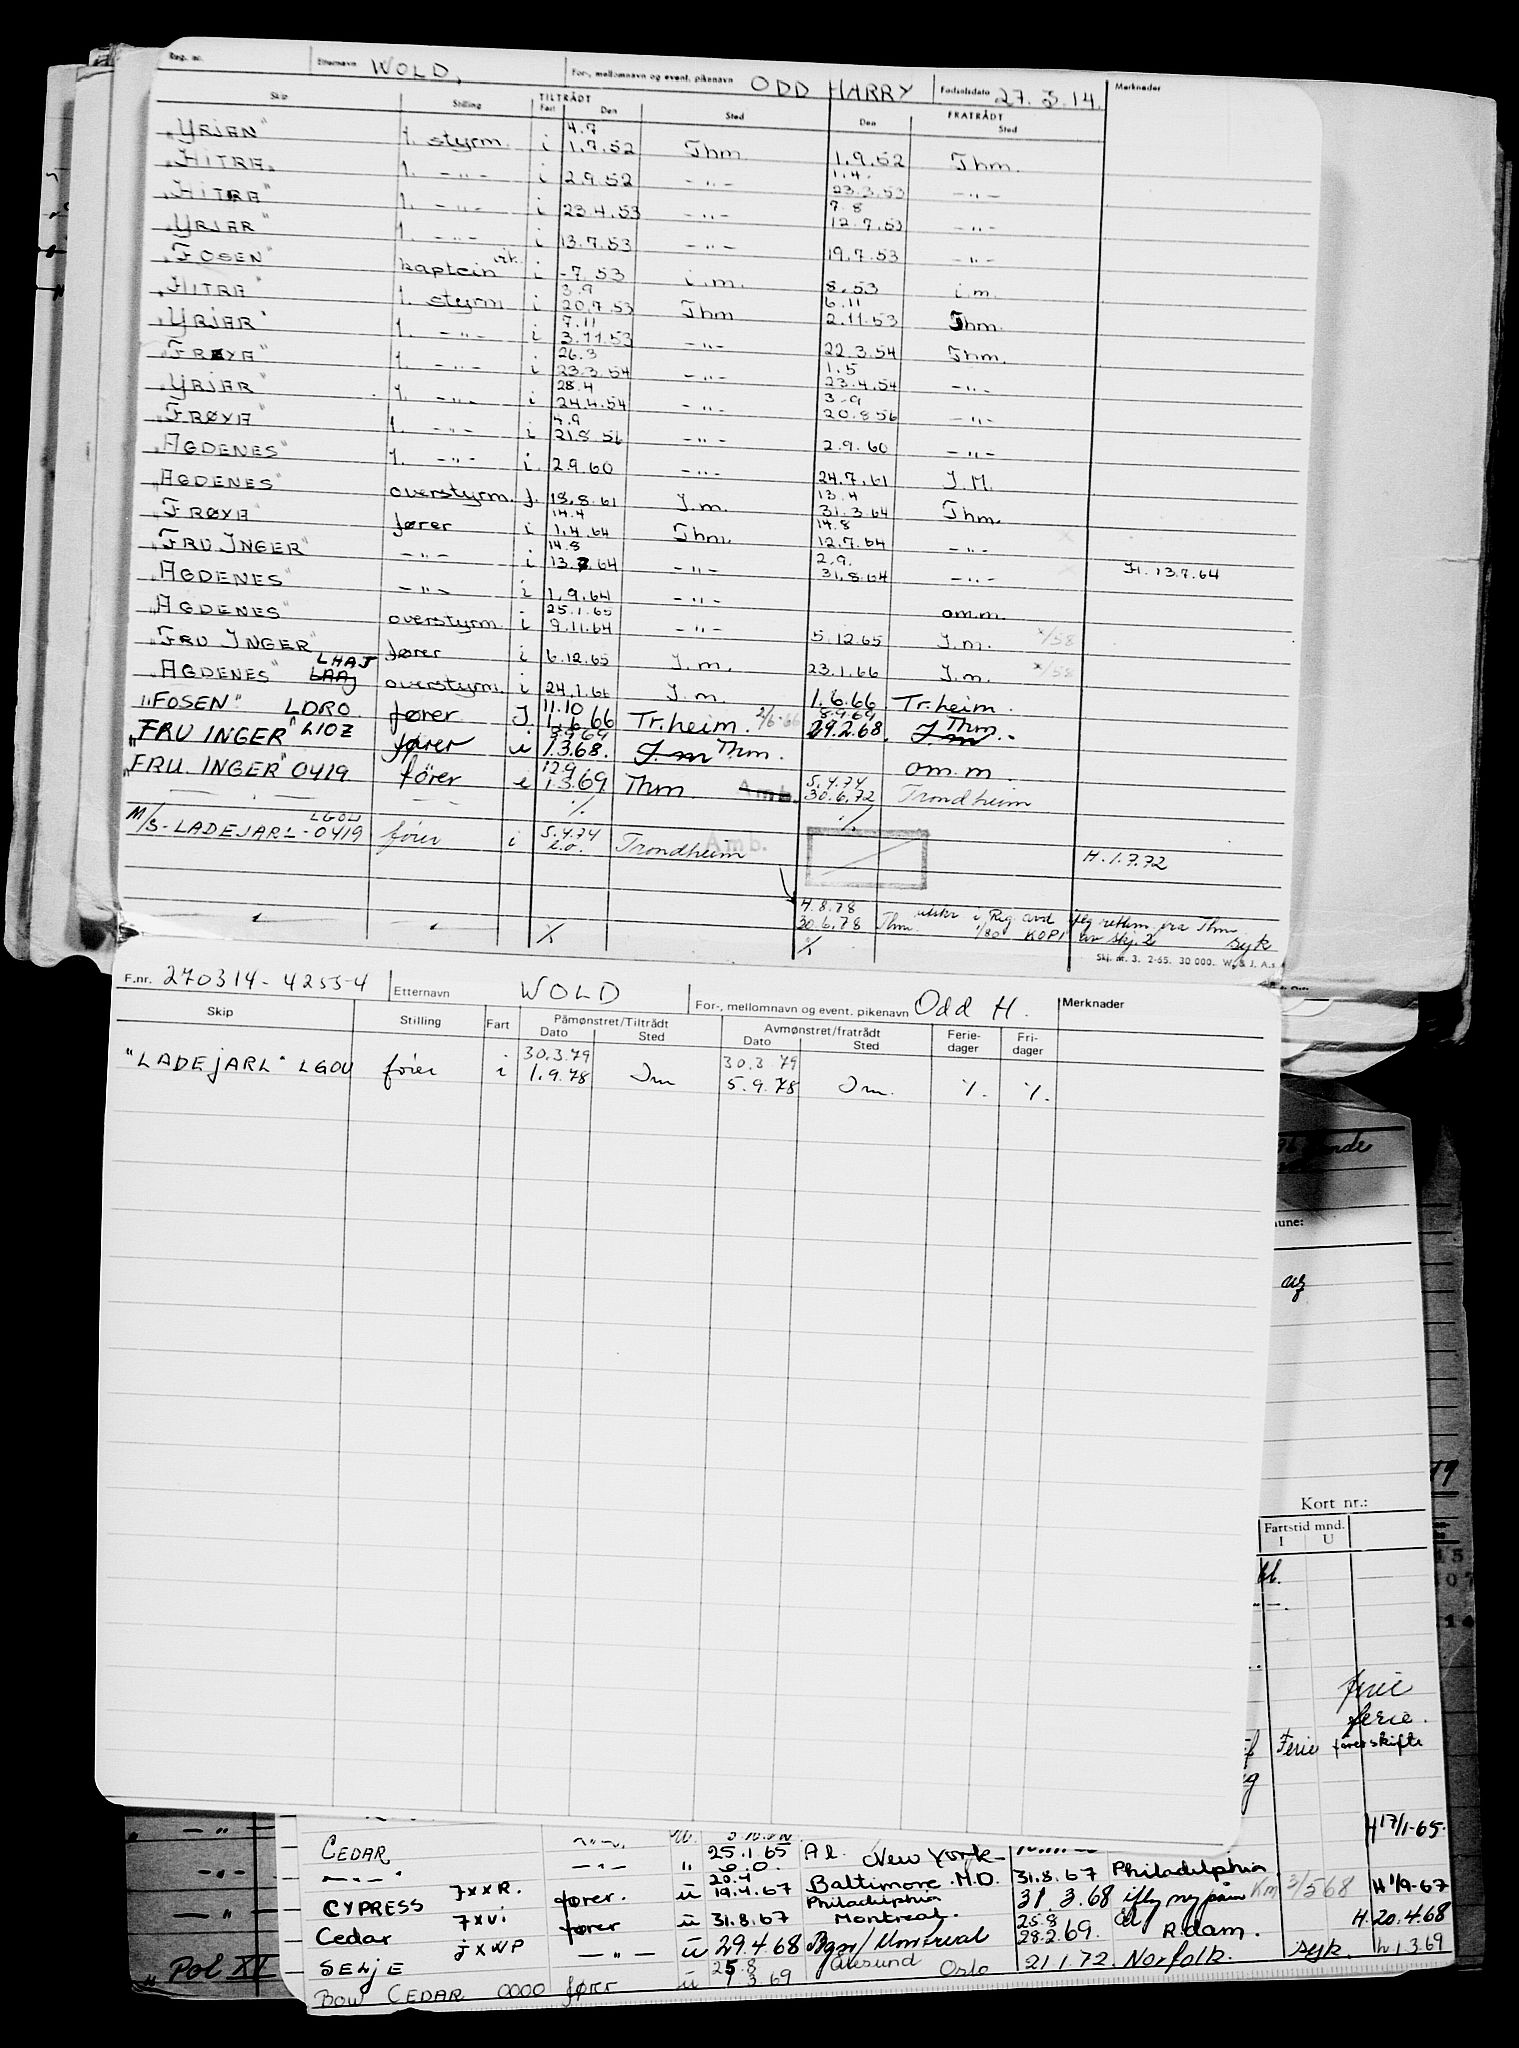 Reg. nr. Etternavn WOLD, For-, mellomnavn og event. pikenavn ODD HARRY Fødselsdato 27.3.14. Merknader
Skip Stilling TILTRÅDT Fart Den Sted FRATRÅDT Den Sted
"YRJAR" 1. styrm. i 4.7 1.7.52 Thm. 1.9.52 Thm.
"HITRA" 1. -"- i 2.9.52 -"- 1.4. 23.3.53 -"-
"HITRA" 1. -"- i 23.4.53 -"- 7.8 12.7.53 -"-
"YRJAR" 1. -"- i 13.7.53 -"- 19.7.53 -"-
"FOSEN" kaptein vik. i -7.53 i.m. 8.53 i.m.
"HITRA" 1. styrm i 3.9 20.7.53 Thm 6.11 2.11.53 Thm.
"YRJAR" 1. -"- i 7.11 3.11.53 -"- 22.3.54 Thm.
"FRØYA" 1. -"- i 26.3 23.3.54 -"- 1.5 23.4.54 -"-
"YRJAR" 1. -"- i 28.4 24.4.54 -"- 3-9 20.8.56 -"-
"FRØYA" 1. -"- i 4.9 21.8.56 -"- 2.9.60 -"-
"AGDENES" 1. -"- i. 2.9.60 -"- 24.7.61 J.M.
"AGDENES" overstyrm. J. 18.8.61 J.m. 13.4 31.3.64 Thm.
"FRØYA" fører i 14.4 1.4.64 Thm. 14.8 12.7.64 -"-
"FRU INGER" -"- i 14.8 13.7.64 -"- 2.9. 31.8.64 -"- H. 13.7.64
"AGDENES" -"- i 1.9.64 -"- om.m.
"AGDENES" overstyrm. i 25.1.65 9.11.64 -"- 5.12.65 J.m. x/58
"FRU INGER" fører i 6.12.65 J.m. 23.1.66 J.m. x/58
"AGDENES" LHAJ LAAJ overstyrm. i 24.1.66 J.m. 1.6.66 Tr.heim.
"FOSEN" LDRO fører J 11.10 1.6.66 Tr.heim. 2/6-66 8.9.69 29.2.68. J.m Thm.
"FRU INGER" LIOZ fører i 8.9.69 1.3.68. J.m Thm. om.m.
"FRU. INGER" 0419 fører i 12.9. 1.3.69 Thm Amb. 5.4.74 30.6.72 Trondheim
— — — — — ./. ./.
M/S-LADEJARL-0419 LGOU fører i 5.4.74 e.o. Trondheim Amb. H.1.7.72
4.8.78 30.6.78 Thm utskr i Reg. avd iflg rettim fra Thm 1/80 KOPI av Skj. 2 syk
./. ./. Skj. nr. 3. 2-65. 30 000. W. & J. A.s.
F.nr. 270314-4253-4 Etternavn WOLD For-, mellomnavn og event. pikenavn Odd H. Merknader
Skip Stilling Fart Påmønstret/Tiltrådt Dato Sted Avmønstret/fratrådt Dato Sted Ferie-dager Fri-dager
"LADEJARL" LGOU fører i i 30.3.79 1.9.78 Im 30.3.79 5.9.78 Im. ./. ./.
Kort nr.:
Fartstid mnd.
I U
ferie
ferie.
Ferie fører skifte
H 17/1-65.
CEDAR -"- 25.1.65 Al. New York
-"- -"- " e.o.
CYPRESS JXXR. fører. u 20.4 19.4.67 Baltimore. M.D. 31.8.67 Philadelphia. H 1/9-67
Cedar JXVI fører u 31.8.67 Philadelphia Montreal. 31.3.68 iflg ny påm Km 3/568 H.20.4.68
SELJE JXWP -"- u 29.4.68 Bgn/Montreal 25.8 28.2.69. R.dam. H.1.3.69
Bow CEDAR 0000 fører u 25.8 1.3.69 Ålesund Oslo 21.1.72. Norfolk. syk.
Pol XI